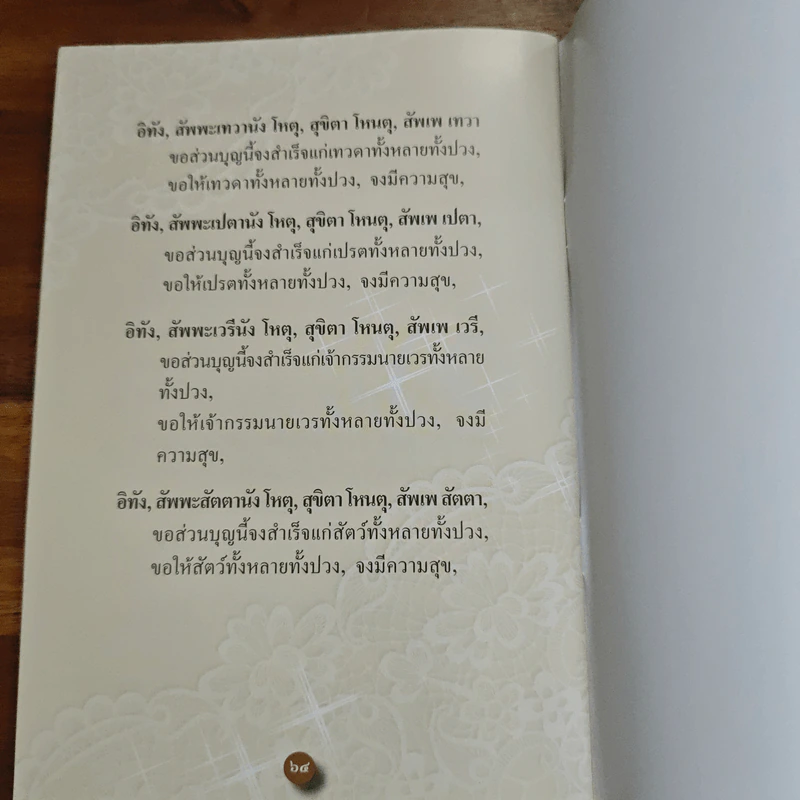 อิทัง, สัพพะเทวานัง โหตุ, สุขิตา โหนตุ, สัพเพ เทวา
ขอส่วนบุญนี้จงสำเร็จแก่เทวดาทั้งหลายทั้งปวง,
ขอให้เทวดาทั้งหลายทั้งปวง, จงมีความสุข,
อิทัง, สัพพะเปตานัง โหตุ, สุขิตา โหนตุ, สัพเพ เปตา,
ขอส่วนบุญนี้จงสำเร็จแก่เปรตทั้งหลายทั้งปวง,
ขอให้เปรตทั้งหลายทั้งปวง, จงมีความสุข,
อิทัง, สัพพะเวรีนัง โหตุ, สุขิตา โหนตุ, สัพเพ เวรี,
ขอส่วนบุญนี้จงสำเร็จแก่เจ้ากรรมนายเวรทั้งหลาย
ทั้งปวง,
ขอให้เจ้ากรรมนายเวรทั้งหลายทั้งปวง, จงมี
ความสุข,
อิทัง, สัพพะสัตตานัง โหตุ, สุขิตา โหนตุ, สัพเพ สัตตา,
ขอส่วนบุญนี้จงสำเร็จแก่สัตว์ทั้งหลายทั้งปวง,
ขอให้สัตว์ทั้งหลายทั้งปวง, จงมีความสุข,
๖๔